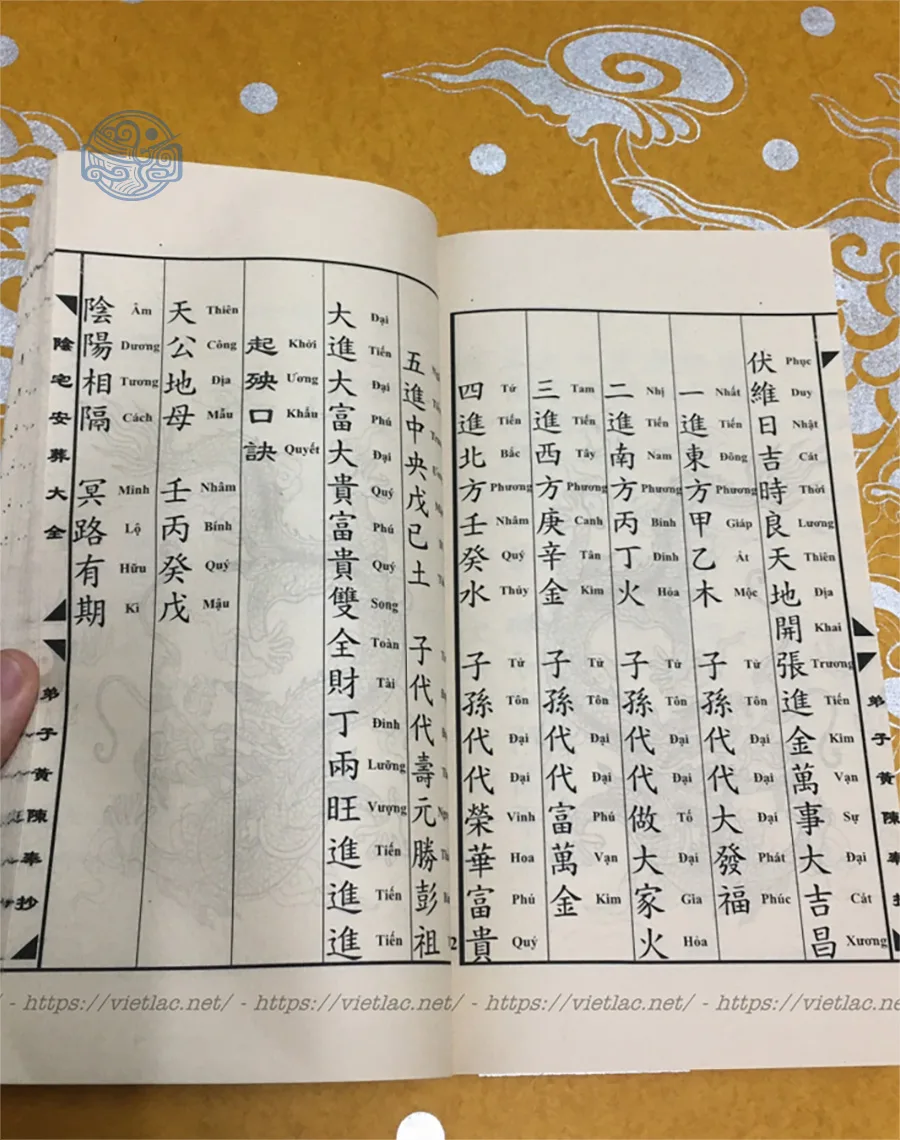 伏維日吉時良天地開張進金萬事大吉昌
Phục Duy Nhật Cát Thời Lương Thiên Địa Khai Trương Tiến Kim Vạn Sự Đại Cát Xương
一進東方甲乙木 子孫代代大發福
Nhất Tiến Đông Phương Giáp Ất Mộc Tử Tôn Đại Đại Đại Phát Phúc
二進南方丙丁火 子孫代代做大家火
Nhị Tiến Nam Phương Bính Đinh Hỏa Tử Tôn Đại Đại Tố Đại Gia Hỏa
三進西方庚辛金 子孫代代富萬金
Tam Tiến Tây Phương Canh Tân Kim Tử Tôn Đại Đại Phú Vạn Kim
四進北方壬癸水 子孫代代榮華富貴
Tứ Tiến Bắc Phương Nhâm Quý Thủy Tử Tôn Đại Đại Vinh Hoa Phú Quý
弟子黃陳奉抄
五進中央戊己土 子代代壽元勝彭祖
大進大富大貴富貴雙全財丁兩旺進進進
Đại Tiến Đại Phú Đại Quý Phú Quý Song Toàn Tài Đinh Lưỡng Vượng Tiến Tiến Tiến
起殃口訣
Khởi Ương Khẩu Quyết
天公地母 壬丙癸戊
Thiên Công Địa Mẫu Nhâm Bính Quý Mậu
陰陽相隔 冥路有期
Âm Dương Tương Cách Minh Lộ Hữu Kì
陰宅安葬大全
弟子黃陳奉抄
- https://vietlac.net/ - https://vietlac.net/ - https://vietlac.net/ -